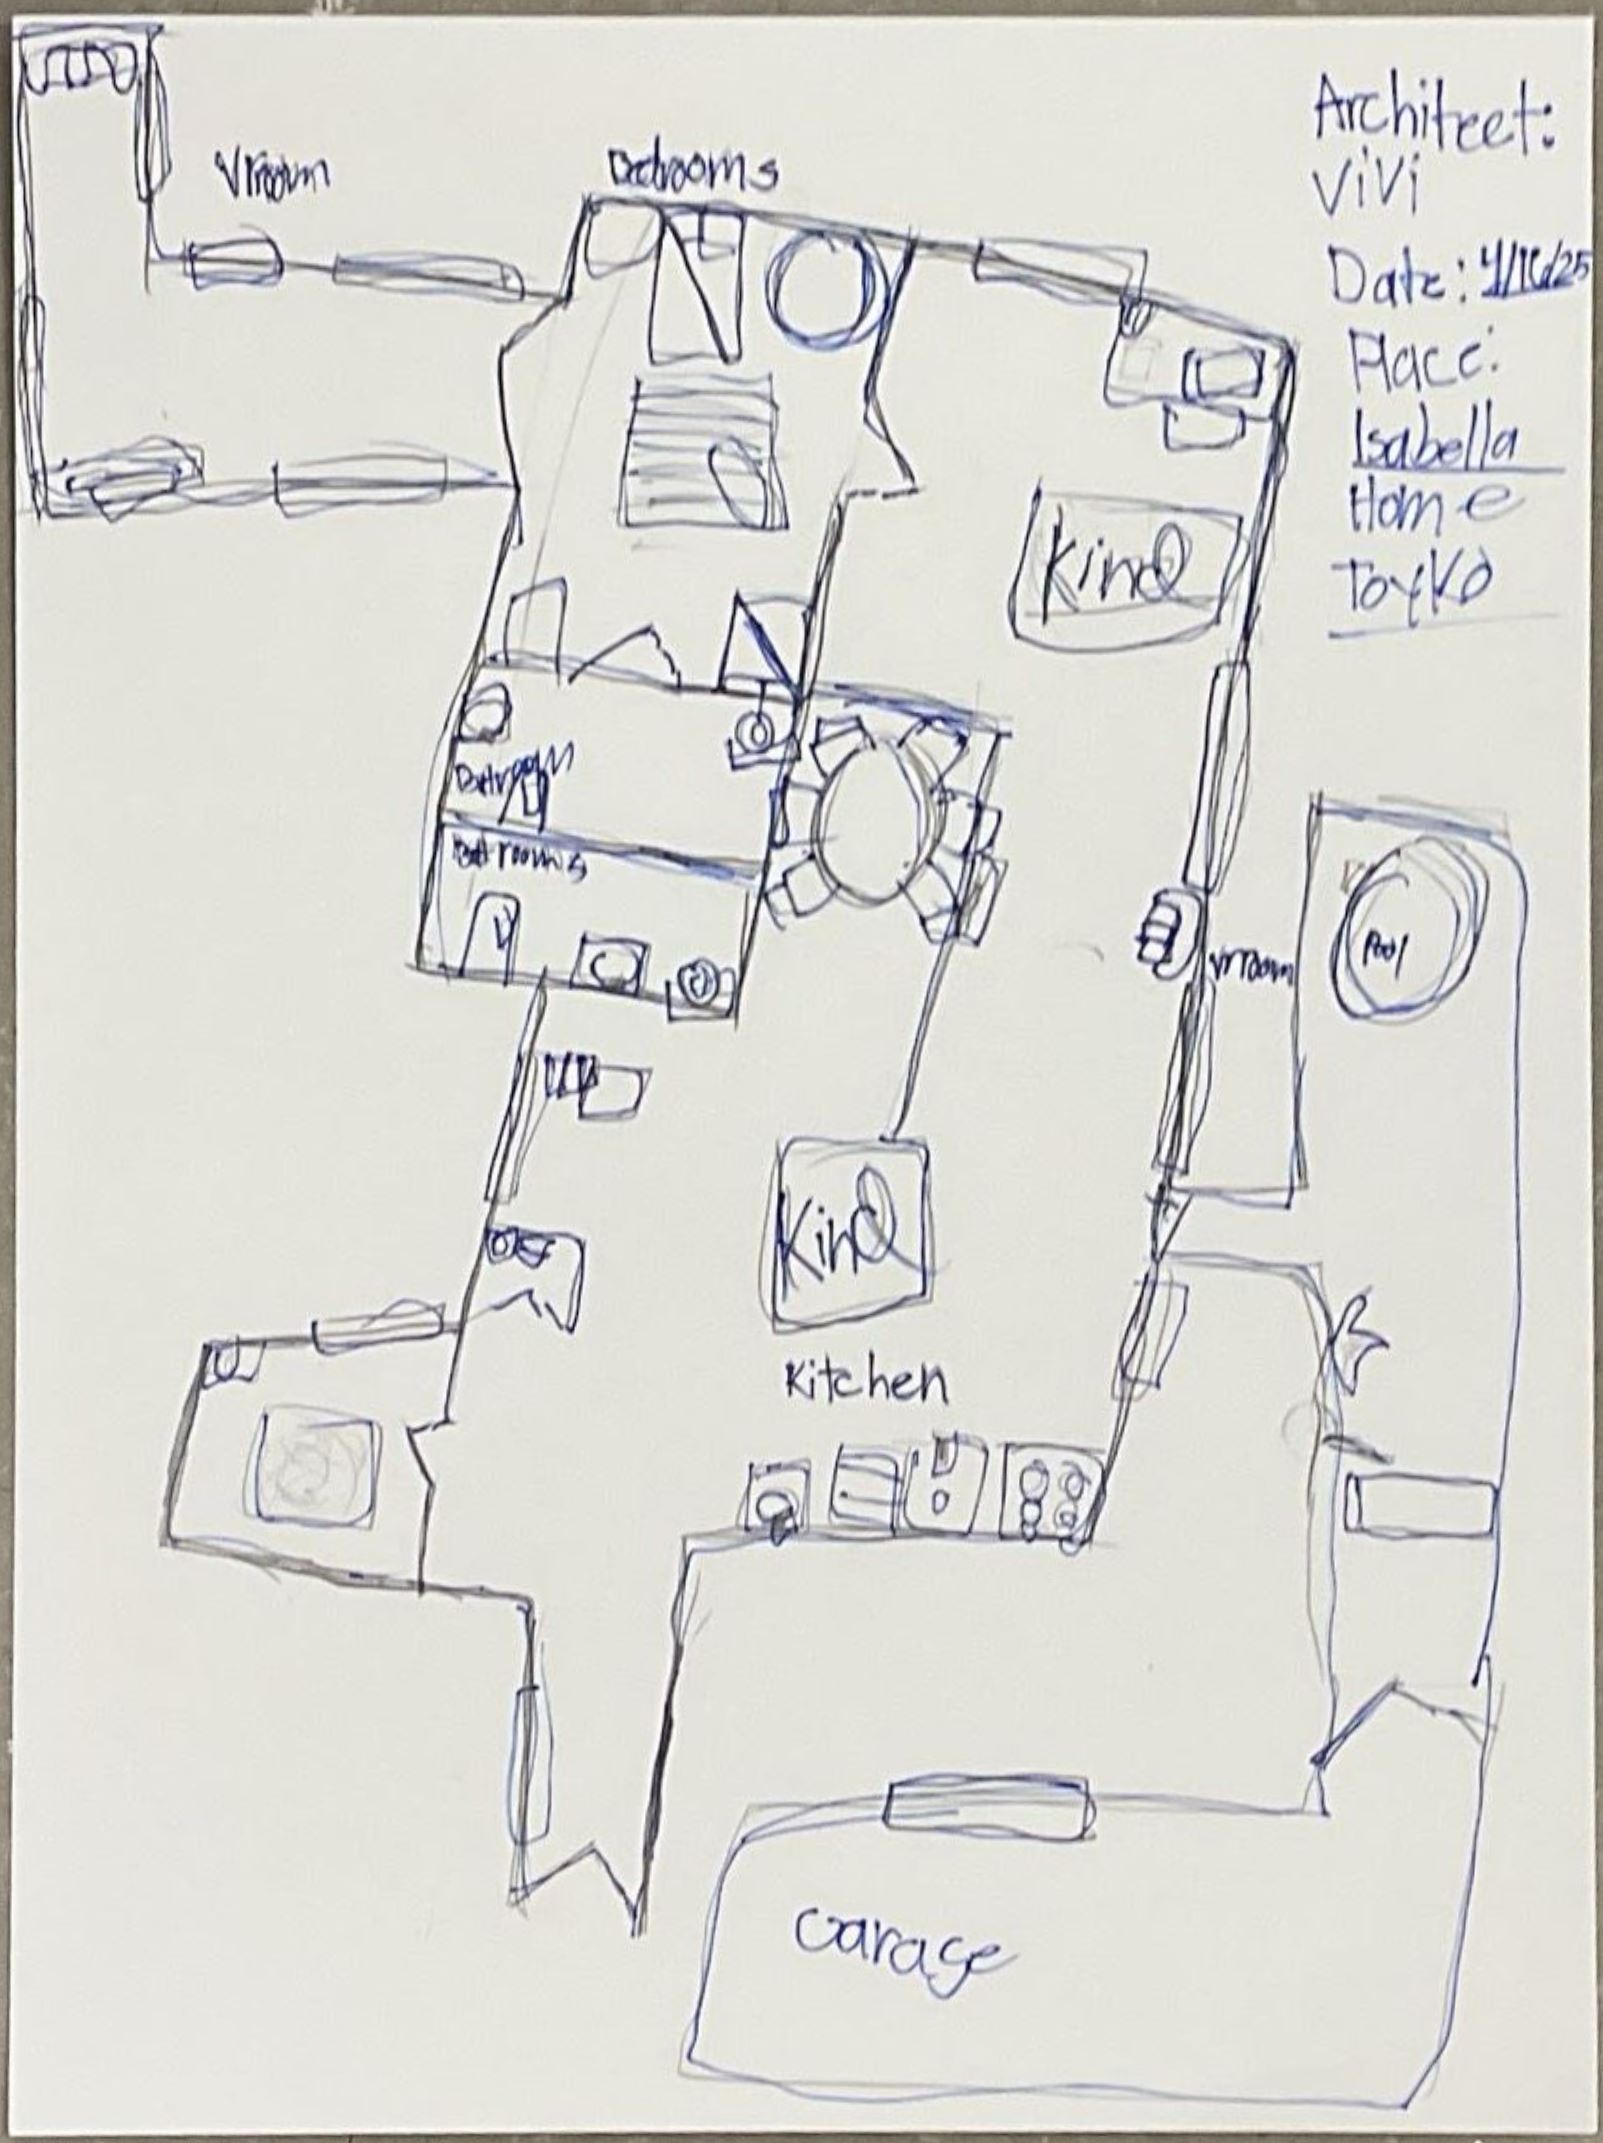 Architect:
ViVi
Date: 4/16/25
Place:
Isabella
Home
ToyKo
Vrroom
Bedrooms
Kind
Batroom
Batrooms
Pool
Vrroom
Kind
Kitchen
Garage